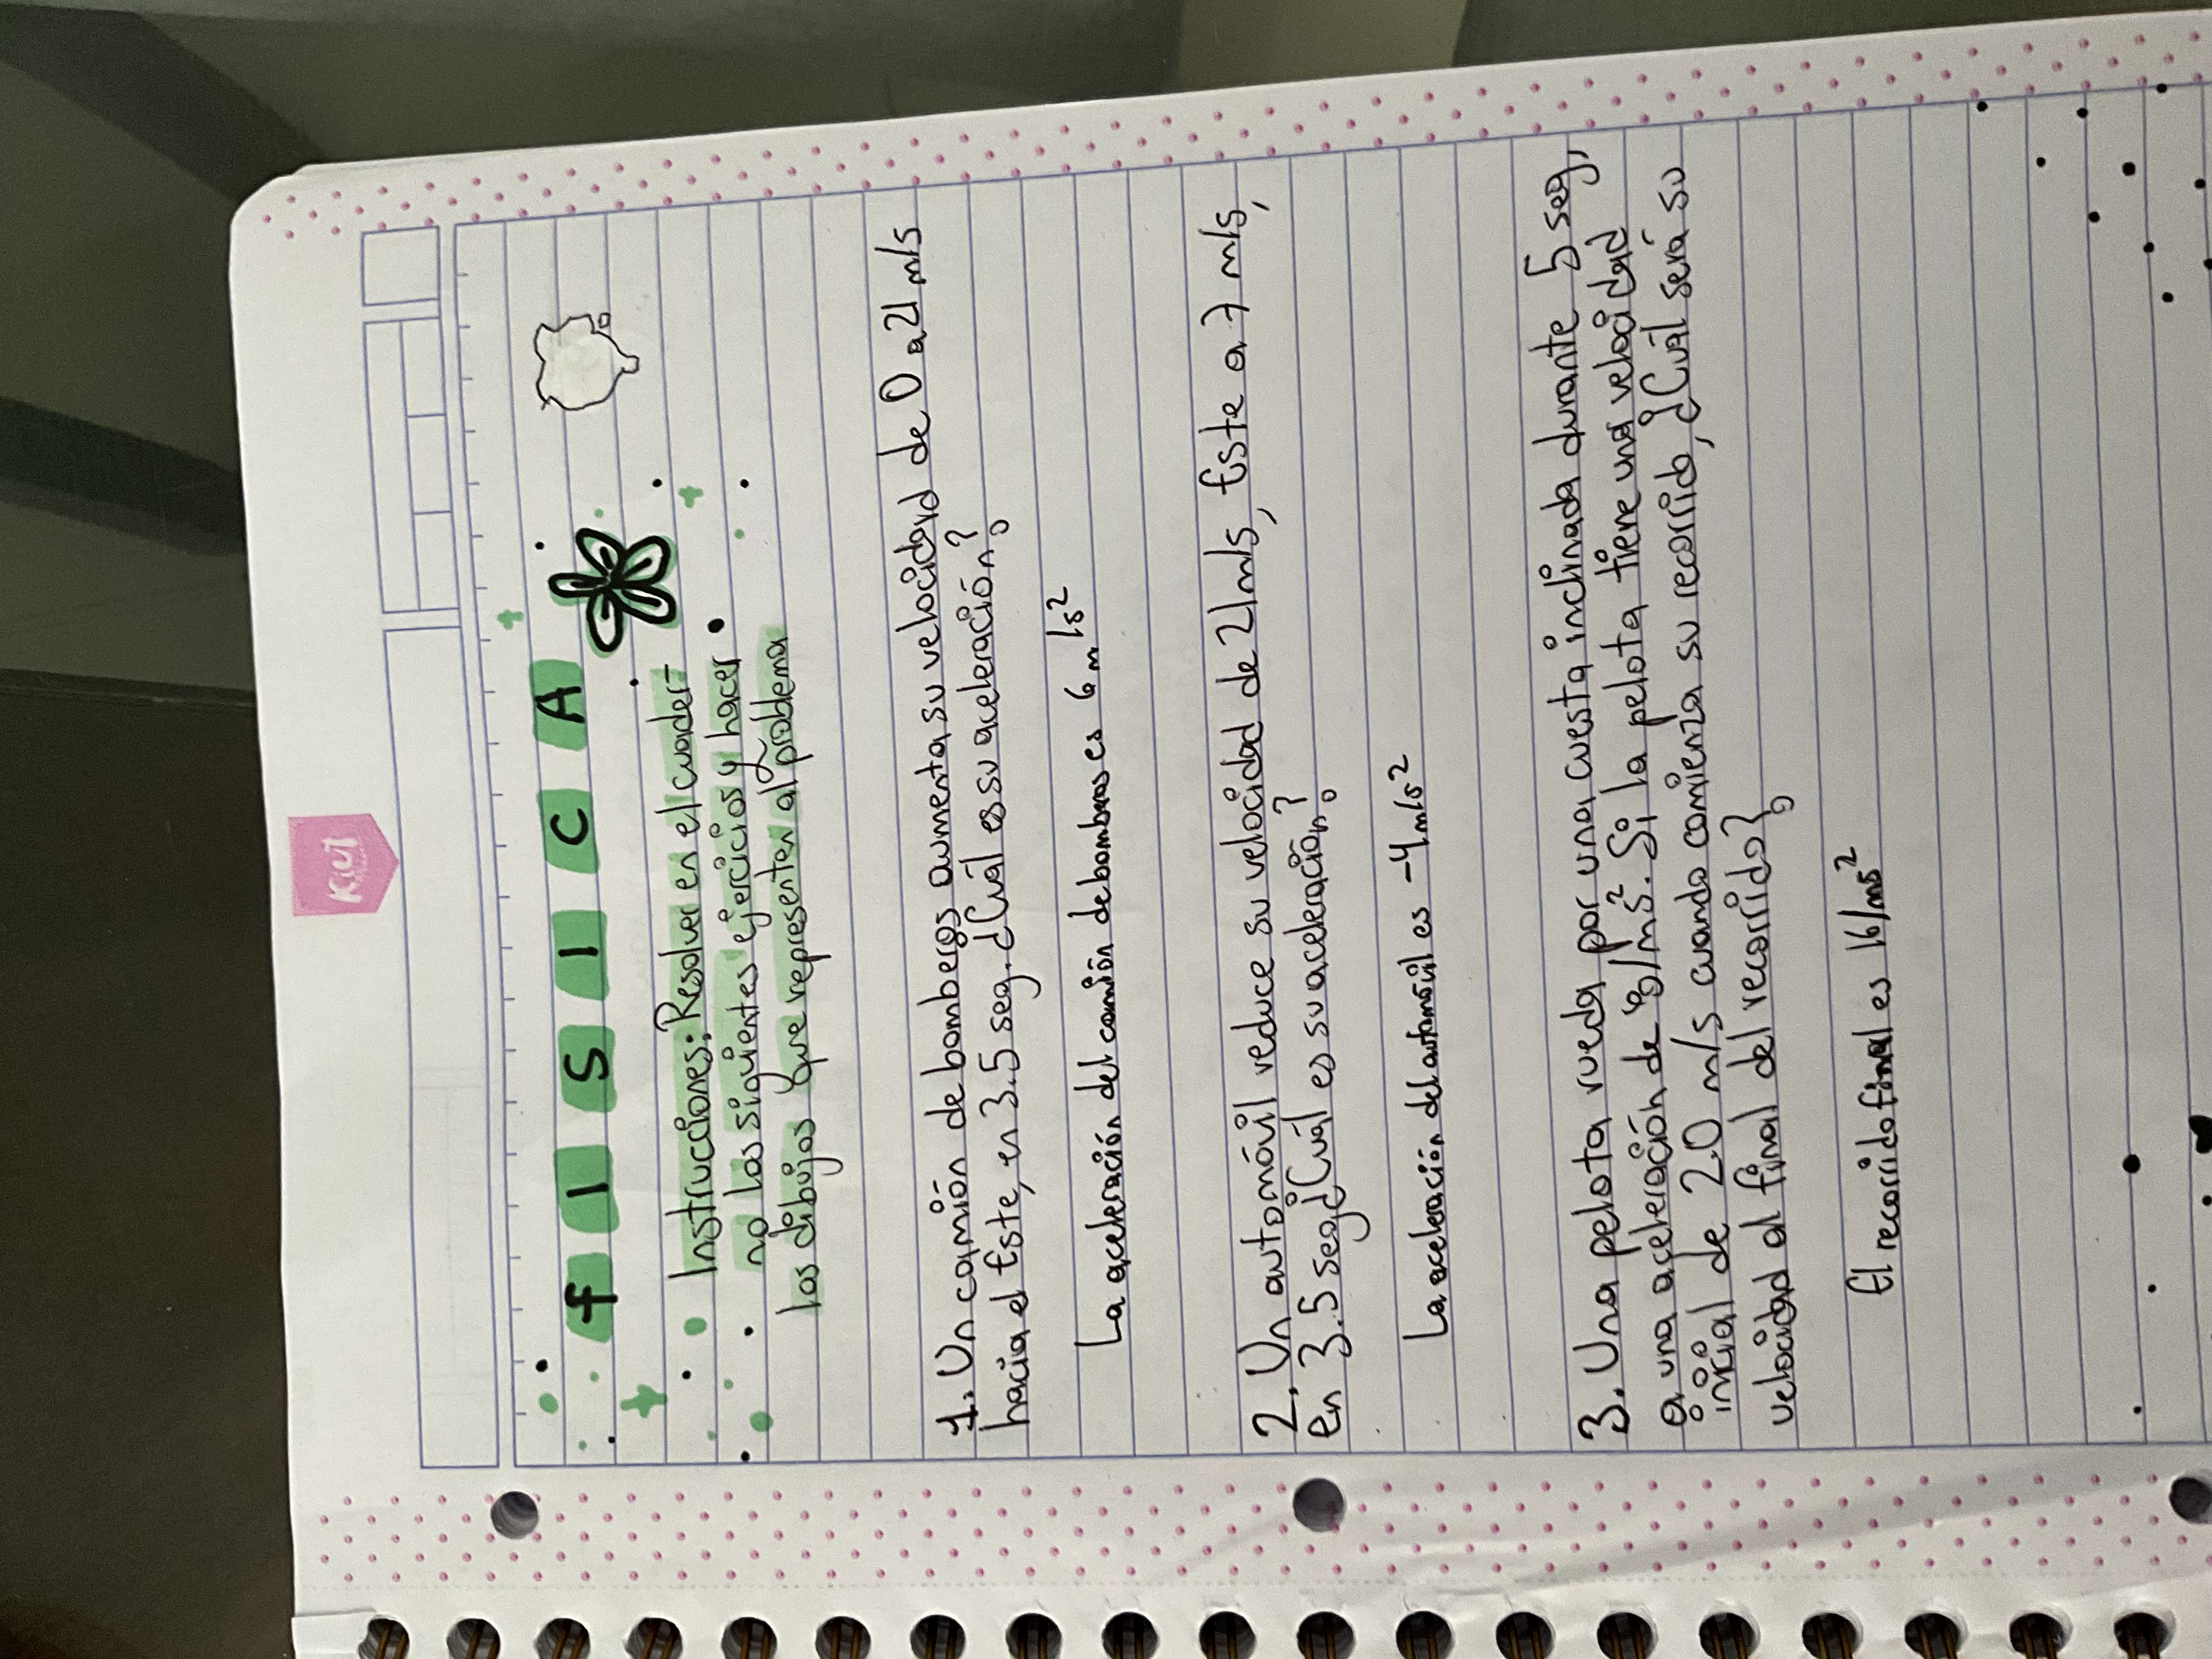 Kiut
FISICA
Instrucciones: Resolver en el cuader-
no los siguientes ejercicios y hacer
los dibujos que representen al problema
1. Un camión de bomberos aumenta su velocidad de 0 a 21 m/s
hacia el Este, en 3.5 seg. ¿Cuál es su aceleración?
La aceleración del camión de bomberos es 6 m/s²
2. Un automóvil reduce su velocidad de 21 m/s, Este a 7 m/s,
en 3.5 seg ¿Cuál es su aceleración?
La aceleración del automóvil es -4 m/s²
3. Una pelota rueda por una cuesta inclinada durante 5 seg,
a una aceleración de 8/ms². Si la pelota tiene una velocidad
inicial de 2.0 m/s cuando comienza su recorrido, ¿Cuál será su
velocidad al final del recorrido?
El recorrido final es 16/ms²